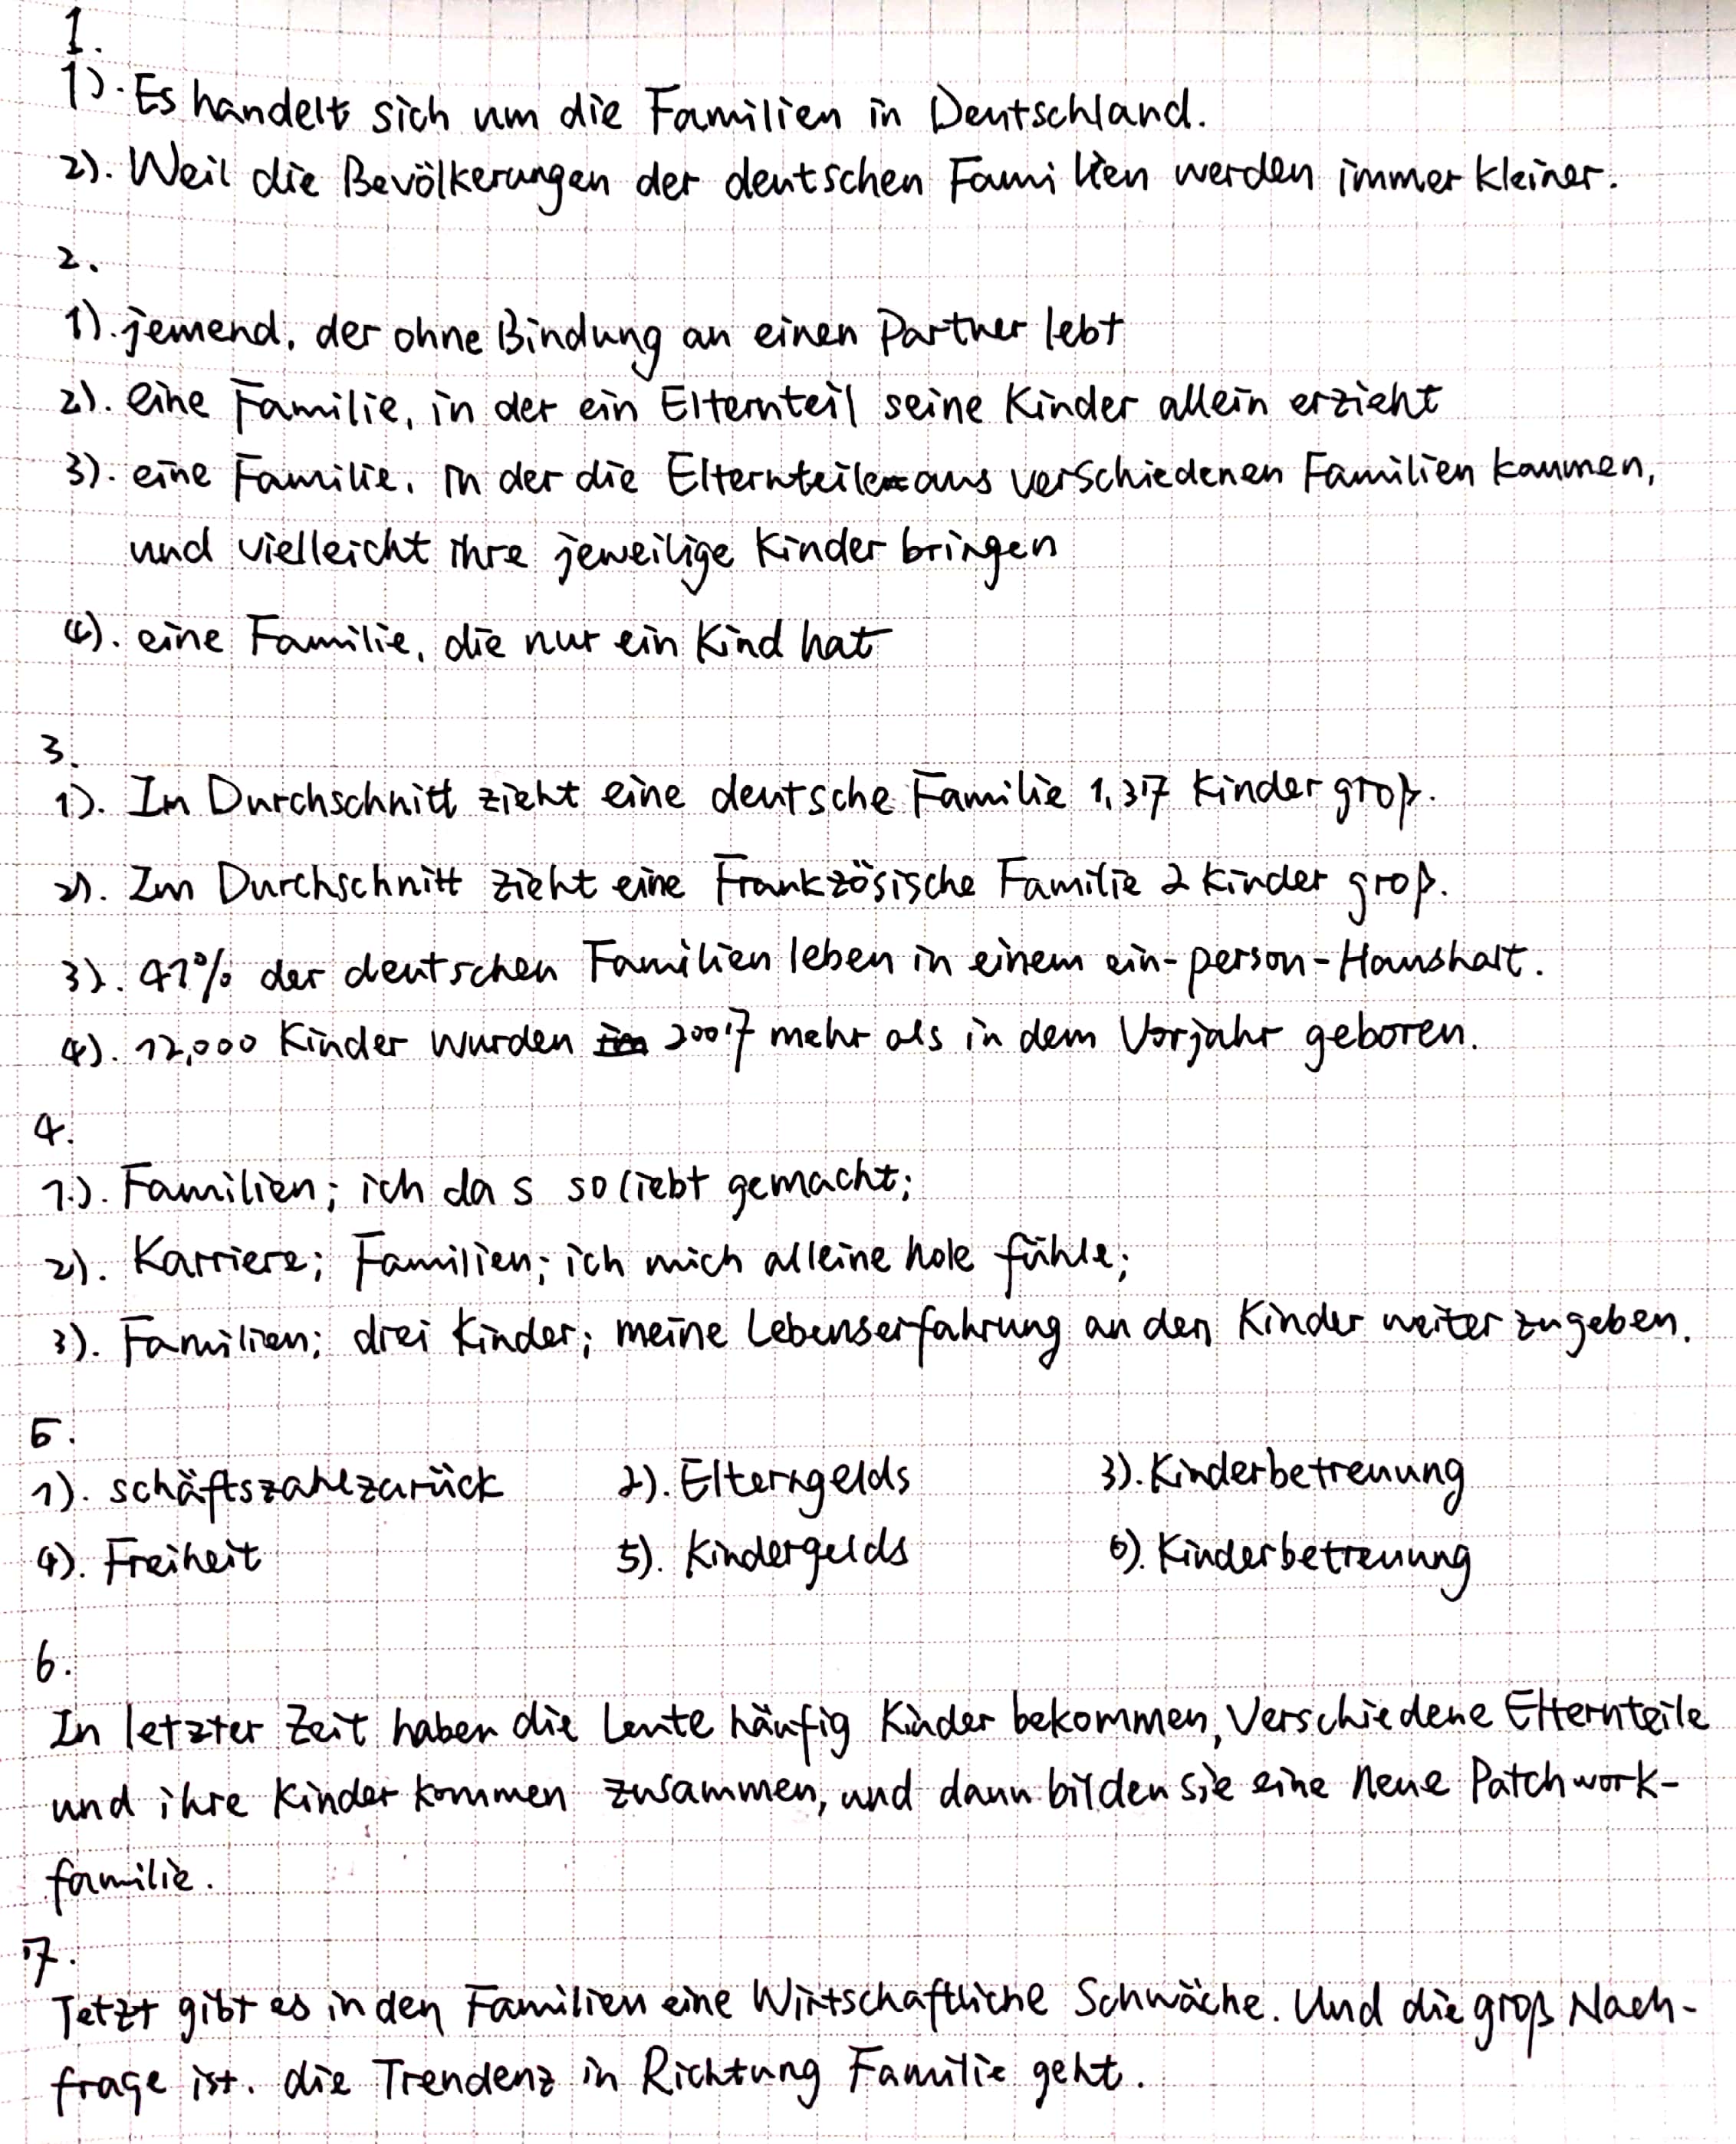 1.
1). Es handelt sich um die Familien in Deutschland.
2). Weil die Bevölkerungen der deutschen Familien werden immer kleiner.
2.
1). jemend, der ohne Bindung an einen Partner lebt
2). eine Familie, in der ein Elternteil seine Kinder allein erzieht
3). eine Familie, in der die Elternteile aus verschiedenen Familien kommen,
und vielleicht ihre jeweilige Kinder bringen
4). eine Familie, die nur ein Kind hat
3.
1). Im Durchschnitt zieht eine deutsche Familie 1,37 Kinder groß.
2). Im Durchschnitt zieht eine Frankzösische Familie 2 Kinder groß.
3). 41% der deutschen Familien leben in einem ein-person-Haushalt.
4). 12,000 Kinder wurden 2007 mehr als in dem Vorjahr geboren.
4.
1). Familien; ich das so liebt gemacht;
2). Karriere; Familien; ich mich alleine fühle;
3). Familien; drei Kinder; meine Lebenserfahrung an den Kinder weiter zugeben.
5.
1). schäftszahlzurück 2). Elterngelds 3). Kinderbetreuung
4). Freiheit 5). Kindergelds 6). Kinderbetreuung
6.
In letzter Zeit haben die Leute häufig Kinder bekommen, Verschiedene Elternteile
und ihre Kinder kommen zusammen, und dann bilden sie eine neue Patchwork-
familie.
7.
Jetzt gibt es in den Familien eine Wirtschaftliche Schwäche. Und die groß Nach-
frage ist. die Trendenz in Richtung Familie geht.